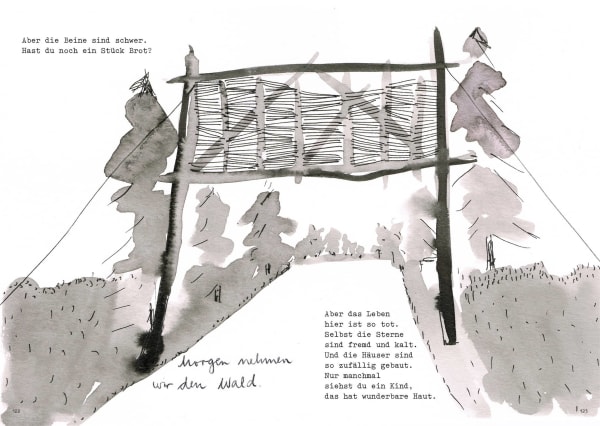 Aber die Beine sind schwer.
Hast du noch ein Stück Brot?
Morgen nehmen
wir den Wald.
Aber das Leben
hier ist so tot.
Selbst die Sterne
sind fremd und kalt.
Und die Häuser sind
so zufällig gebaut.
Nur manchmal
siehst du ein Kind,
das hat wunderbare Haut.
120
121